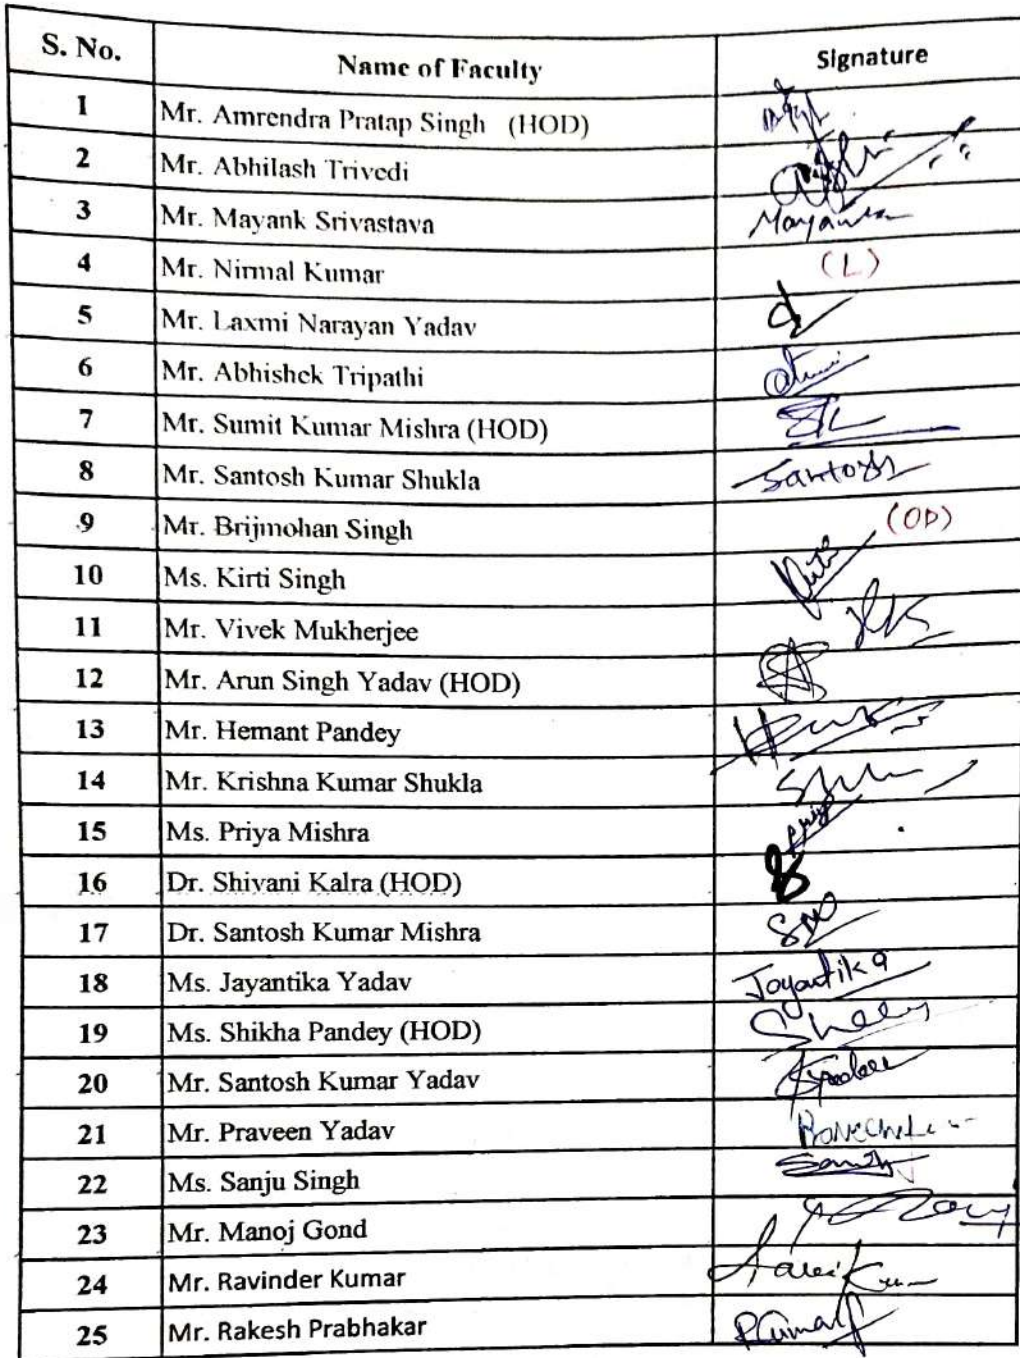 S. No. Name of Faculty Signature
1 Mr. Amrendra Pratap Singh (HOD)
2 Mr. Abhilash Trivedi
3 Mr. Mayank Srivastava Mayank
4 Mr. Nirmal Kumar (L)
5 Mr. Laxmi Narayan Yadav
6 Mr. Abhishek Tripathi
7 Mr. Sumit Kumar Mishra (HOD)
8 Mr. Santosh Kumar Shukla Santosh
9 Mr. Brijmohan Singh (OD)
10 Ms. Kirti Singh
11 Mr. Vivek Mukherjee
12 Mr. Arun Singh Yadav (HOD)
13 Mr. Hemant Pandey
14 Mr. Krishna Kumar Shukla
15 Ms. Priya Mishra Priya
16 Dr. Shivani Kalra (HOD)
17 Dr. Santosh Kumar Mishra
18 Ms. Jayantika Yadav Jayantika
19 Ms. Shikha Pandey (HOD)
20 Mr. Santosh Kumar Yadav
21 Mr. Praveen Yadav
22 Ms. Sanju Singh
23 Mr. Manoj Gond
24 Mr. Ravinder Kumar
25 Mr. Rakesh Prabhakar